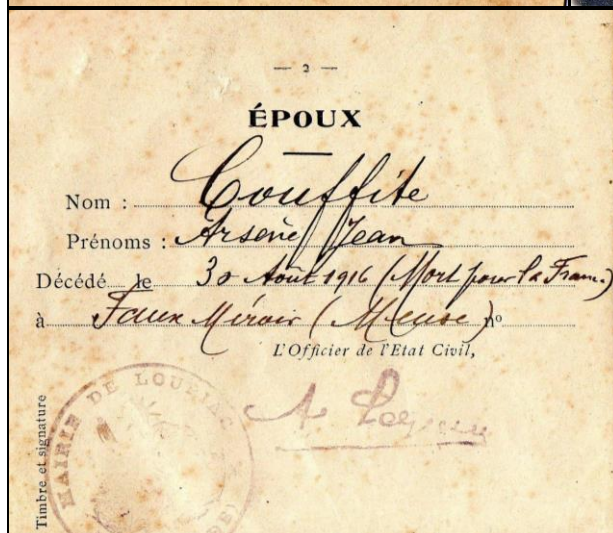 — 2 —
ÉPOUX
Nom : Couffite
Prénoms : Arsène Jean
Décédé le 30 Août 1916 (Mort pour la France)
à Faux Miroir (Meuse) nº
L'Officier de l'Etat Civil,
Timbre et signature
MAIRIE DE
A